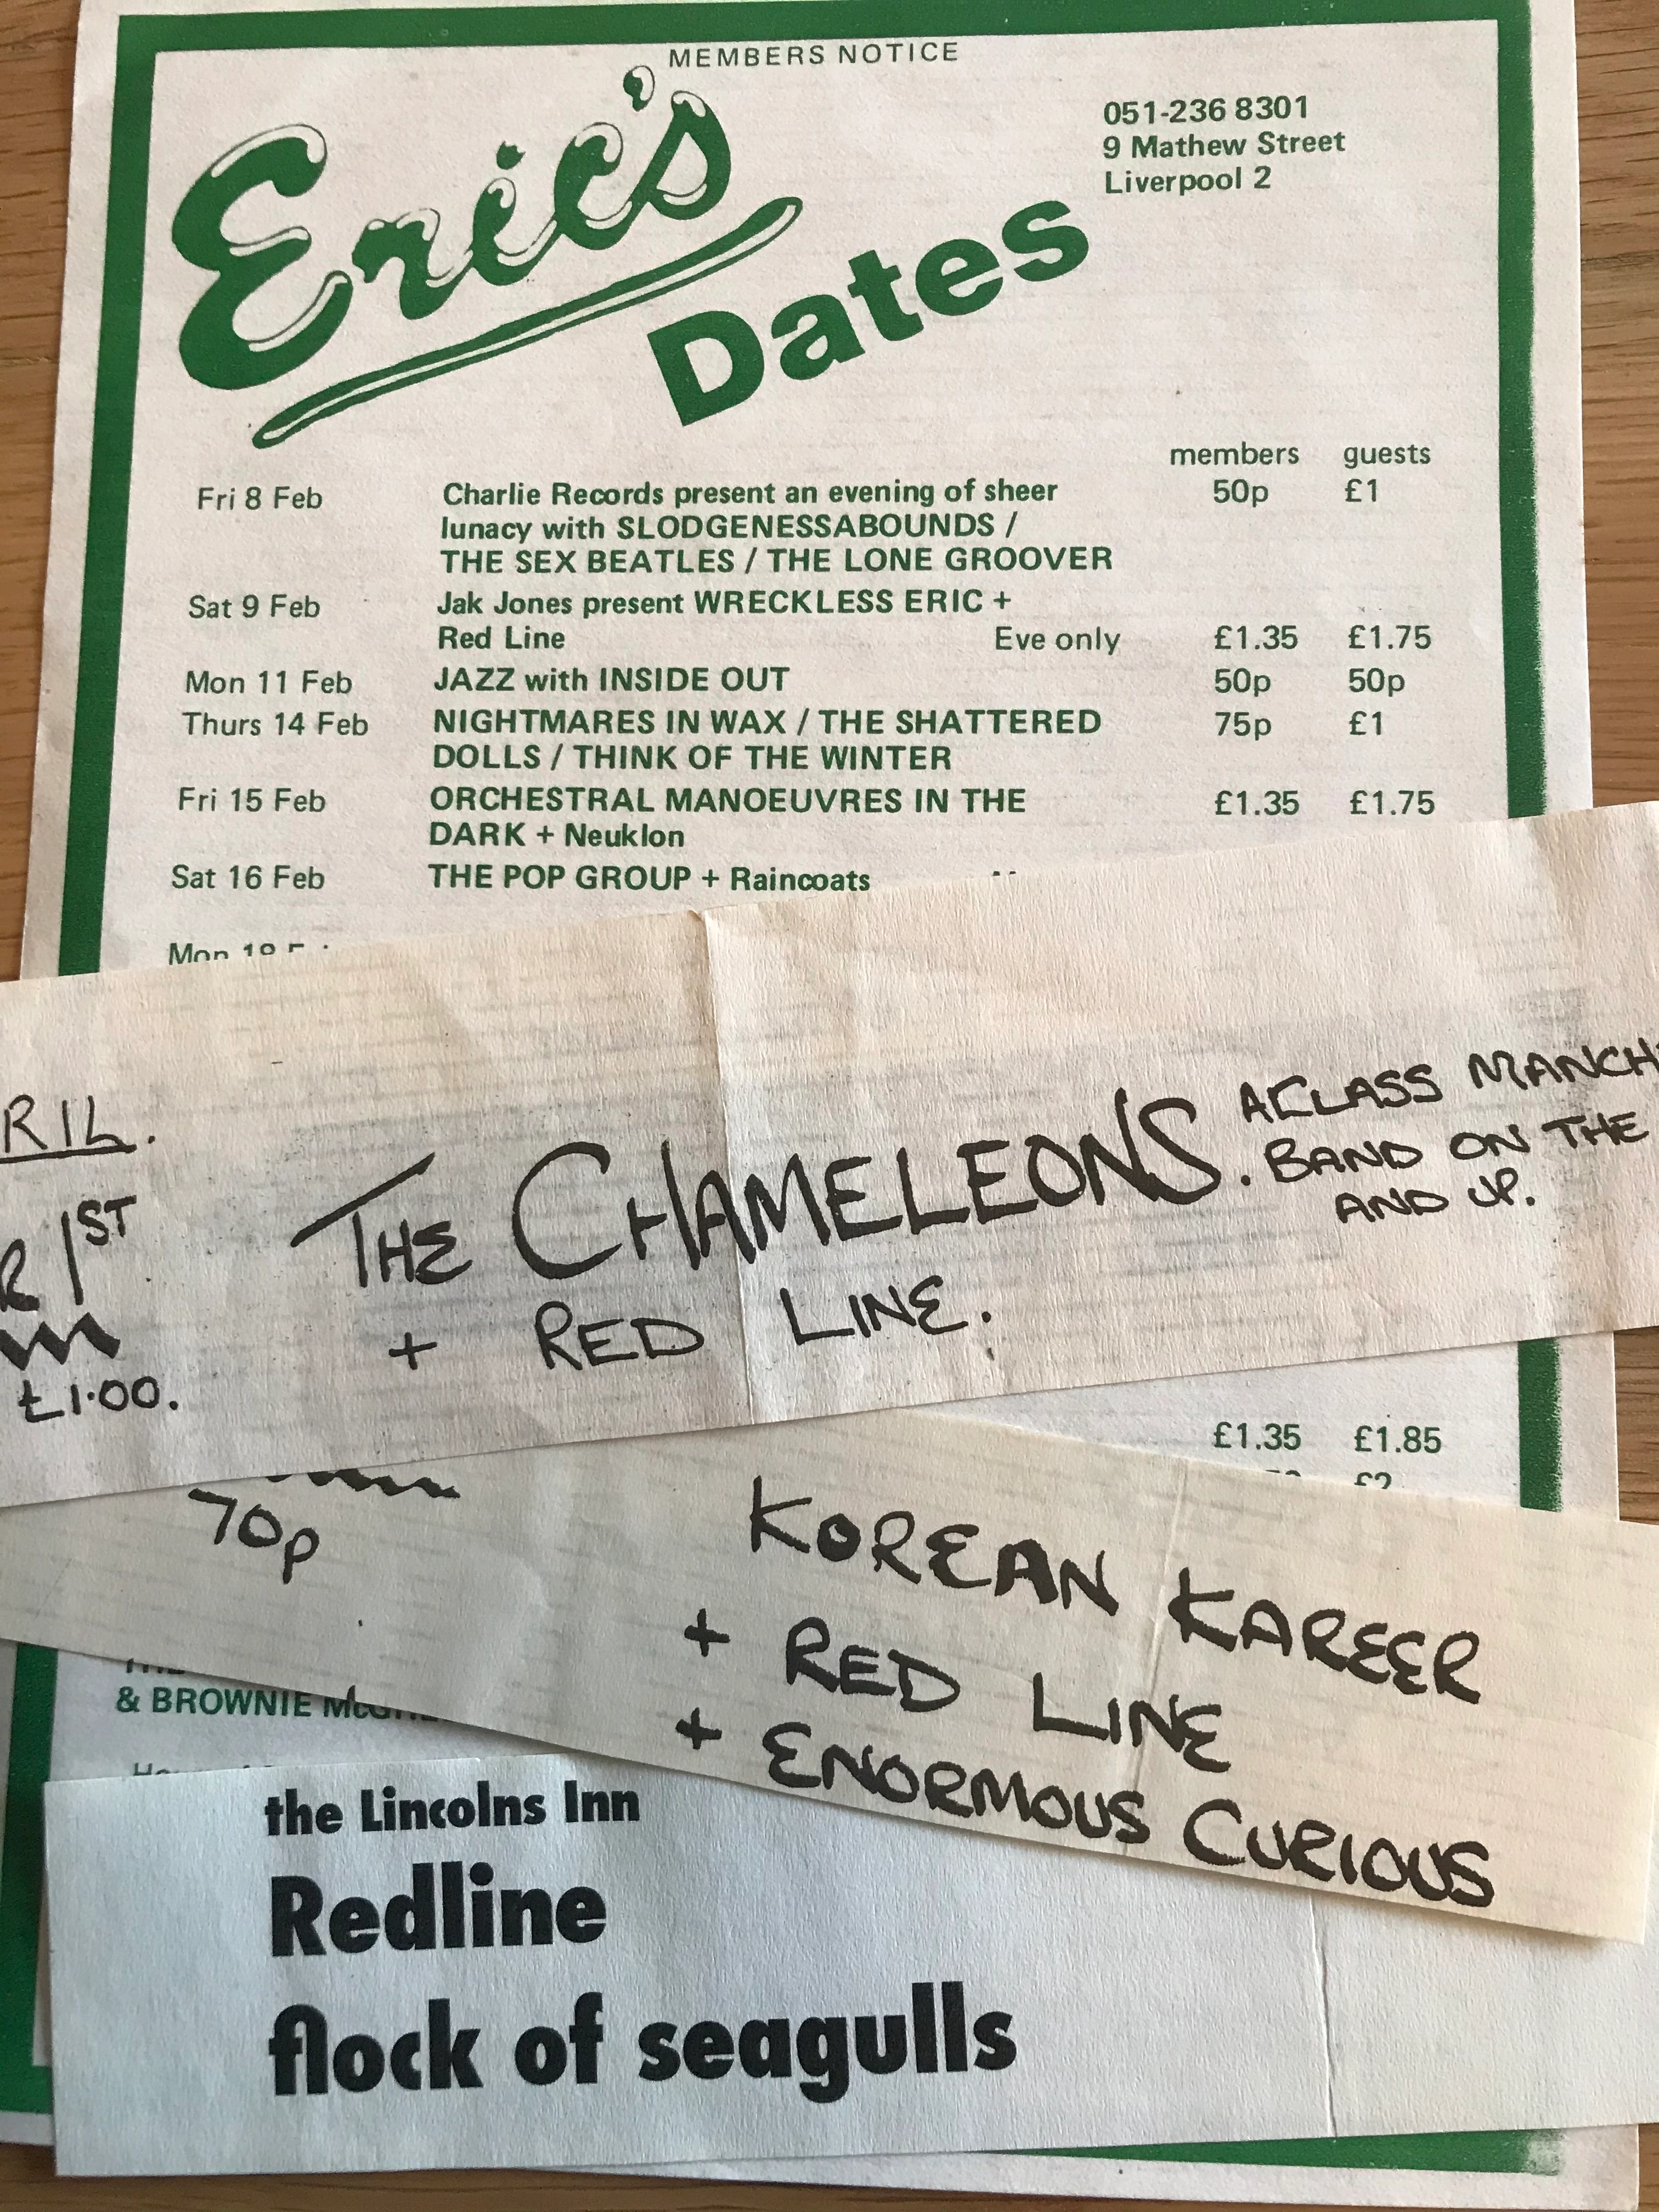 MEMBERS NOTICE
Eric's
Dates
051-236 8301
9 Mathew Street
Liverpool 2
members guests
Fri 8 Feb Charlie Records present an evening of sheer 50p £1
lunacy with SLODGENESSABOUNDS /
THE SEX BEATLES / THE LONE GROOVER
Sat 9 Feb Jak Jones present WRECKLESS ERIC +
Red Line Eve only £1.35 £1.75
Mon 11 Feb JAZZ with INSIDE OUT 50p 50p
Thurs 14 Feb NIGHTMARES IN WAX / THE SHATTERED 75p £1
DOLLS / THINK OF THE WINTER
Fri 15 Feb ORCHESTRAL MANOEUVRES IN THE £1.35 £1.75
DARK + Neuklon
Sat 16 Feb THE POP GROUP + Raincoats
Mon
RIL.
R 1ST
£1.00.
THE CHAMELEONS.
+ RED LINE.
A CLASS MANCH
BAND ON THE
AND UP.
£1.35 £1.85
£2
70p
KOREAN KAREER
+ RED LINE
+ ENORMOUS CURIOUS
& BROWNIE
the Lincolns Inn
Redline
flock of seagulls